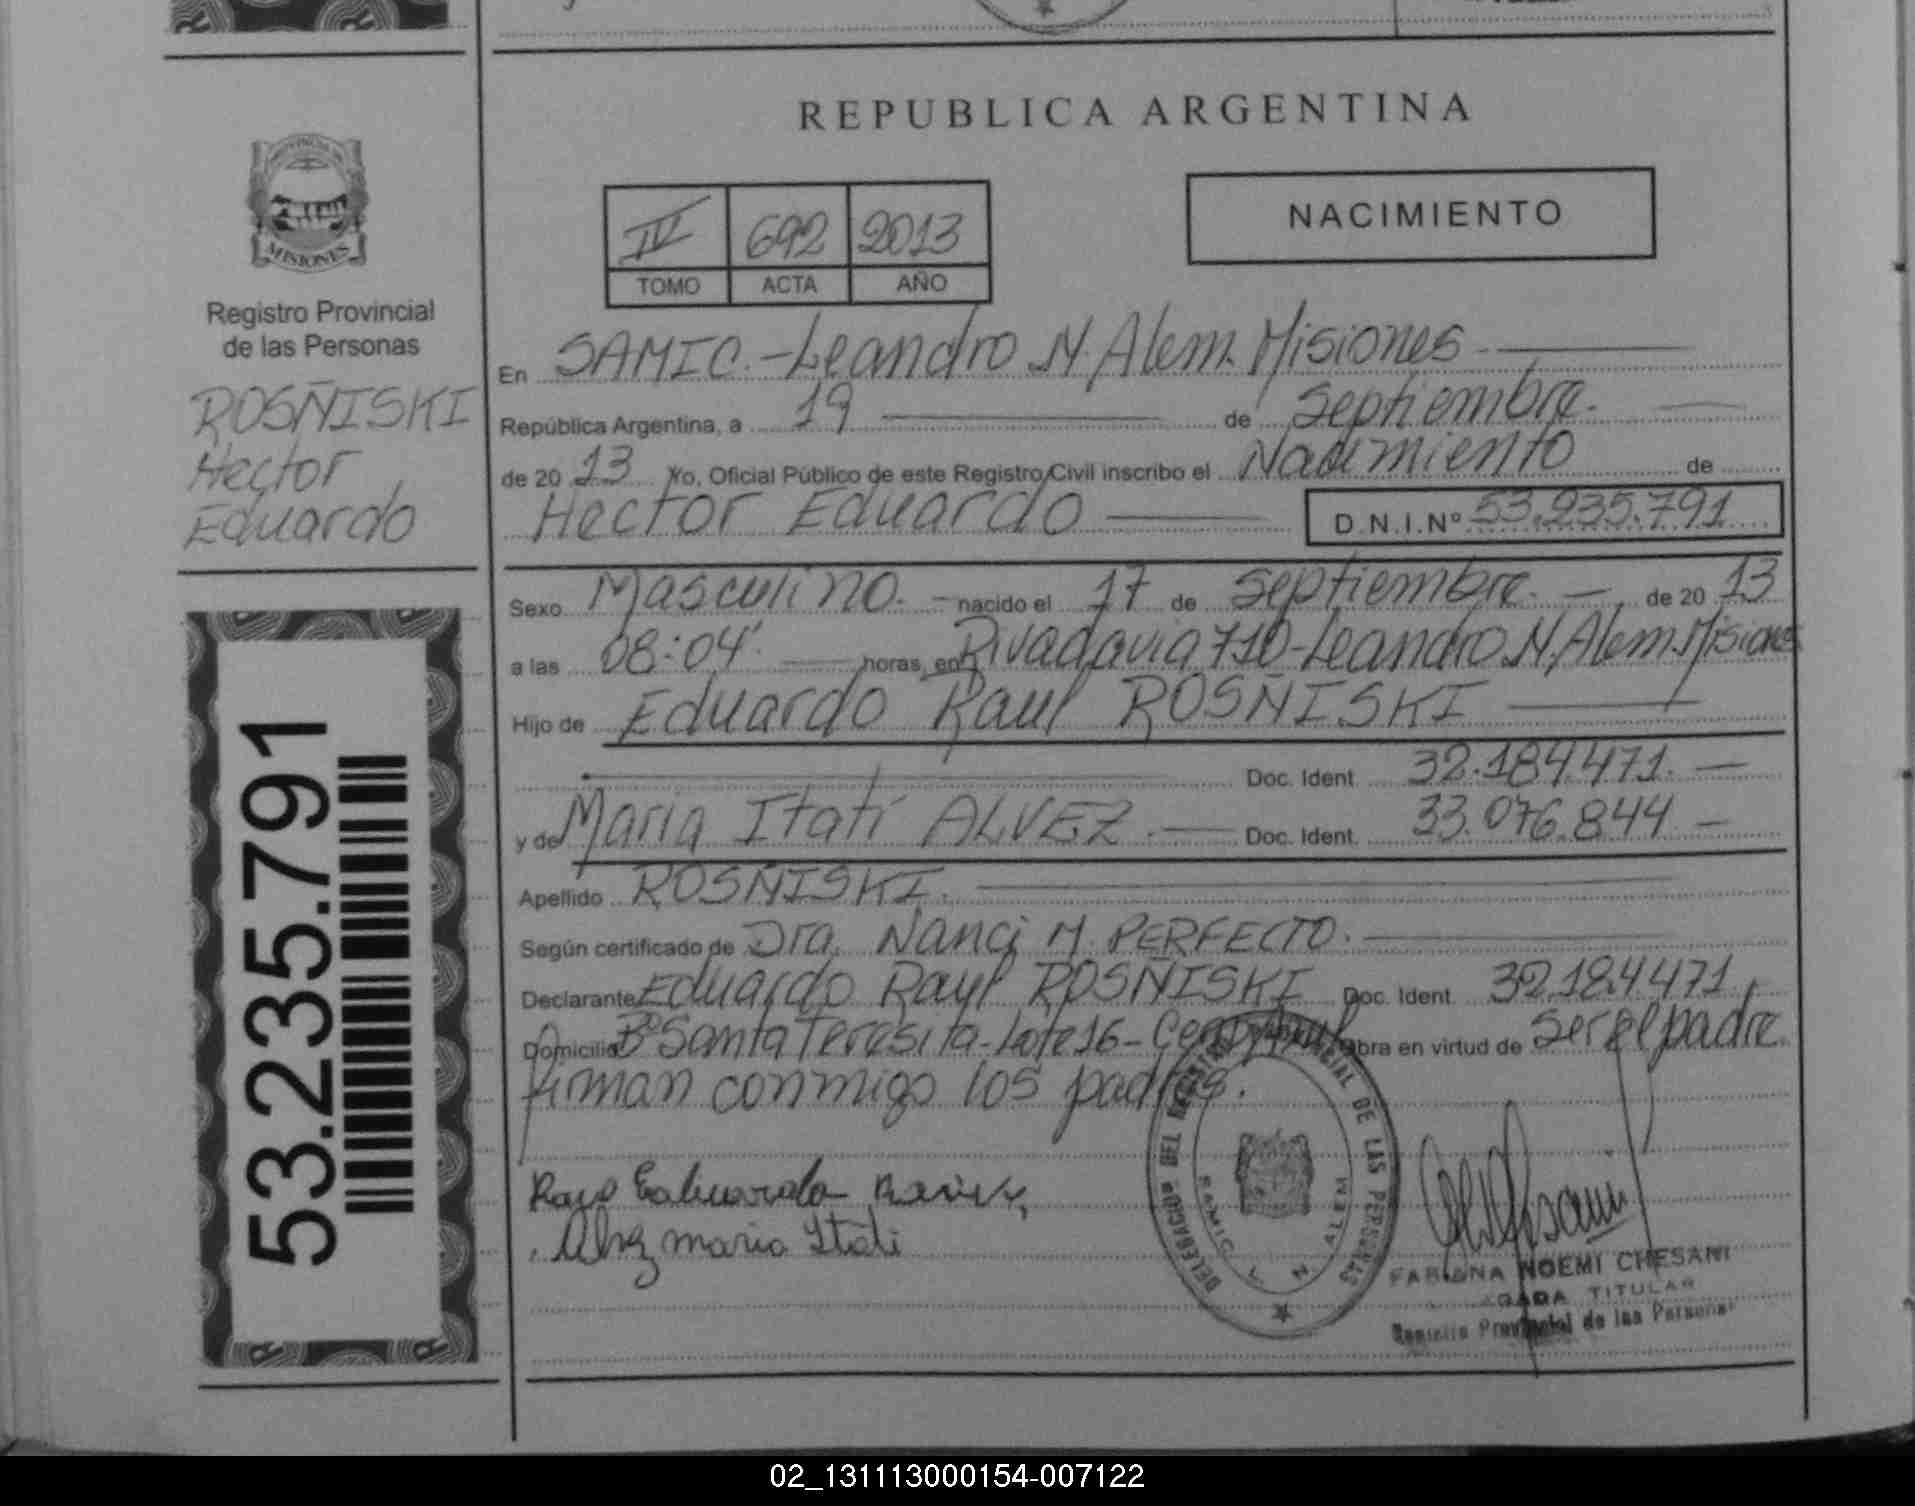 REPUBLICA ARGENTINA
NACIMIENTO
IV 692 2013
TOMO ACTA AÑO
MISIONES
Registro Provincial
de las Personas
ROSÑISKI
Hector
Eduardo
En SAMIC.-Leandro N. Alem. Misiones
República Argentina, a 19 de Septiembre.
de 20 13 Yo, Oficial Público de este Registro Civil inscribo el Nacimiento de
Hector Eduardo D.N.I.Nº 53.235.791
Sexo Masculino. nacido el 17 de Septiembre. de 20 13
a las 08:04' horas, en Rivadavia 710-Leandro N. Alem. Misiones
Hijo de Eduardo Raul ROSÑISKI
Doc. Ident. 32.184.471.
y de Maria Itatí ALVEZ. Doc. Ident. 33.076.844
Apellido ROSÑISKI.
Según certificado de Dra. Nanci M. PERFECTO.
Declarante Eduardo Raul ROSÑISKI Doc. Ident. 32.184.471
Domicilio Bº Santa Teresita-Lote 16- Obra en virtud de ser el padre
firman conmigo los padres.
Alvez maria Itati
DELEGACION DEL REGISTRO PROVINCIAL DE LAS PERSONAS
SAMIC L. N. ALEM
FABIANA NOEMI CHESANI
TITULAR
Registro Provincial de las Personas
53.235.791
02_131113000154-007122